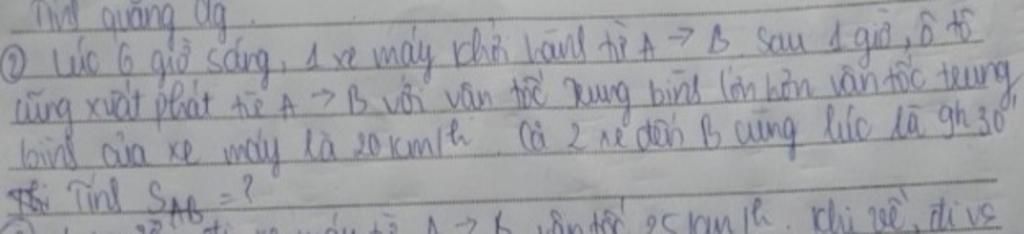 Tính quãng đg.
② Lúc 6 giờ sáng, 1 xe máy khởi hành từ A → B sau 1 giờ, ô tô
cũng xuất phát từ A → B với vận tốc trung bình lớn hơn vận tốc trung
bình của xe máy là 20 km/h. Cả 2 xe đến B cùng lúc là 9h30'
Tính S_AB = ?
A → B vận tốc 25 km/h. Khi về, đi vs